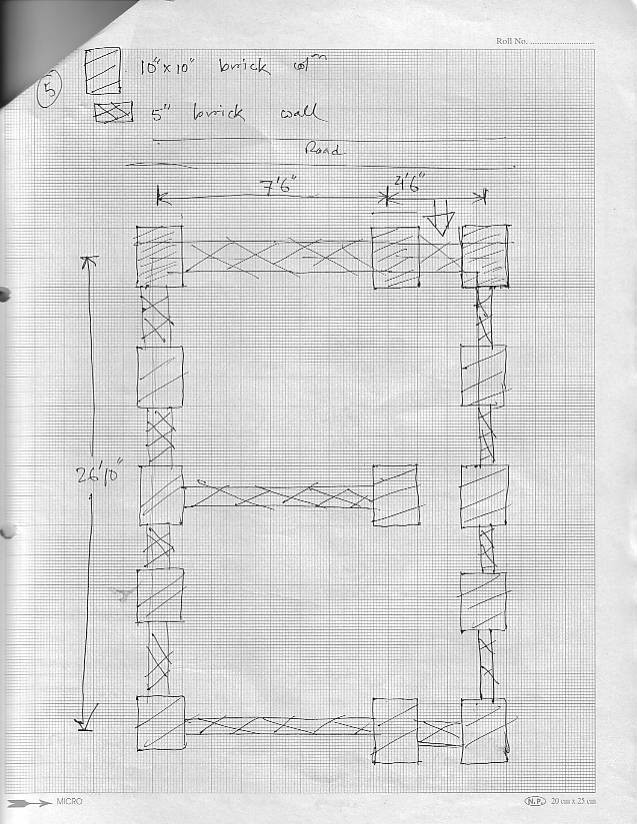 Roll No. ..........................
5
10" x 10" brick colⁿ
5" brick wall
Road
7'6" 4'6"
26'10"
MICRO
N.P. 20 cm x 25 cm